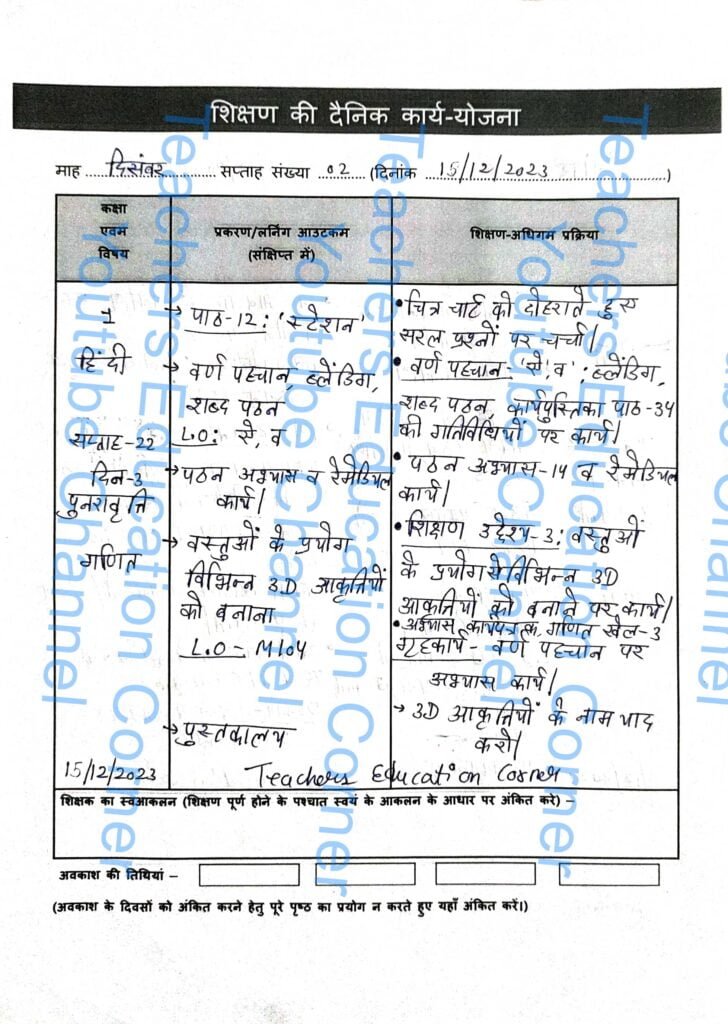 शिक्षण की दैनिक कार्य-योजना
माह ....दिसंबर.... सप्ताह संख्या ..02.. (दिनांक ..15/12/2023..)
कक्षा
एवम
विषय
प्रकरण/लर्निंग आउटकम
(संक्षिप्त में)
शिक्षण-अधिगम प्रक्रिया
1
हिंदी
सप्ताह-22
दिन-3
पुनरावृत्ति
गणित
15/12/2023
→ पाठ-12: 'स्टेशन'
→ वर्ण पहचान, ब्लेंडिंग,
शब्द पठन
L.O: से, व
→ पठन अभ्यास व रेमेडियल
कार्य।
→ वस्तुओं के प्रयोग
विभिन्न 3D आकृत्तियों
को बनाना
L.O - M104
→ पुस्तकालय
• चित्र चार्ट को दोहराते हुए
सरल प्रश्नों पर चर्चा।
• वर्ण पहचान- 'से, व'; ब्लेंडिंग,
शब्द पठन, कार्यपुस्तिका पाठ-34
की गतिविधियों पर कार्य।
• पठन अभ्यास-14 व रेमेडियल
कार्य।
• शिक्षण उद्देश्य-3: वस्तुओं
के प्रयोग से विभिन्न 3D
आकृत्तियों को बनाने पर कार्य।
• अभ्यास कार्यपत्रक, गणित खेल-3
गृहकार्य- वर्ण पहचान पर
अभ्यास कार्य।
→ 3D आकृत्तियों के नाम याद
करो।
Teachers Education Corner
शिक्षक का स्वआकलन (शिक्षण पूर्ण होने के पश्चात स्वयं के आकलन के आधार पर अंकित करे) –
अवकाश की तिथियां –
(अवकाश के दिवसों को अंकित करने हेतु पूरे पृष्ठ का प्रयोग न करते हुए यहाँ अंकित करें।)
Teachers Education Corner
Youtube Channel
Teachers Education Corner
Youtube Channel
Teachers Education Corner
Youtube Channel